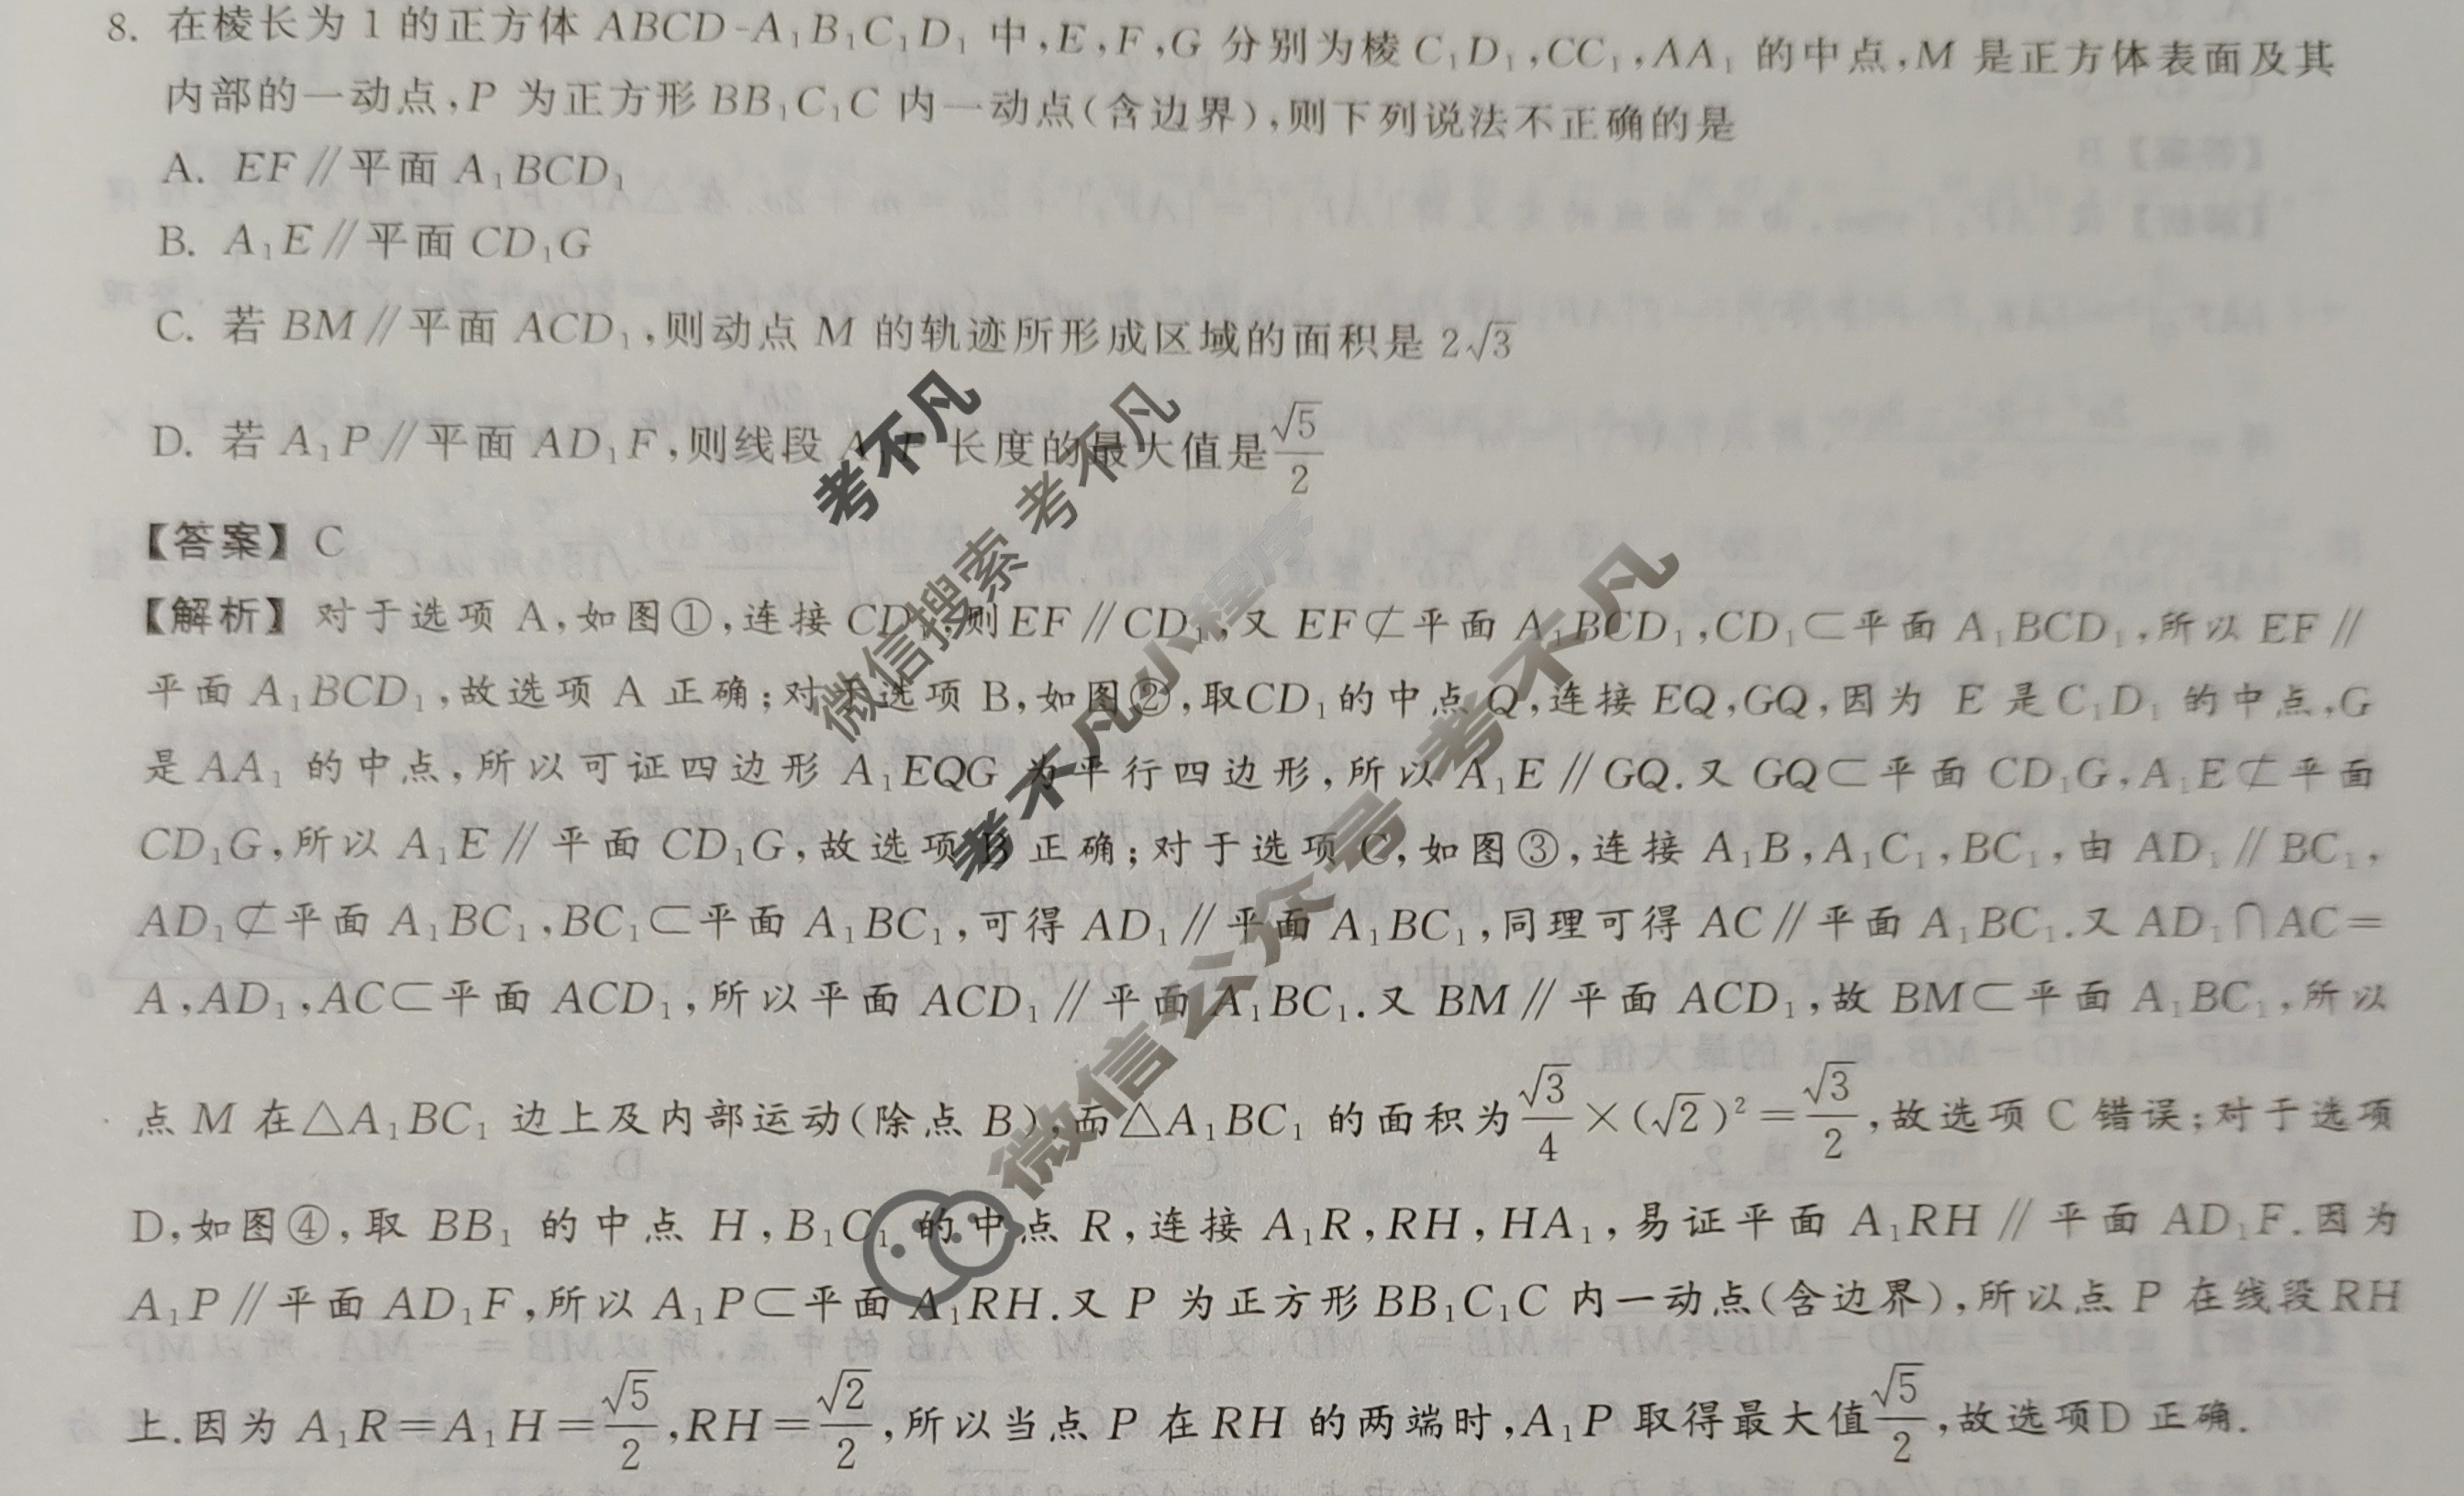 8. 在棱长为1的正方体 ABCD-A₁B₁C₁D₁ 中,E,F,G 分别为棱 C₁D₁,CC₁,AA₁ 的中点,M 是正方体表面及其
内部的一动点,P 为正方形 BB₁C₁C 内一动点(含边界),则下列说法不正确的是
A. EF∥平面 A₁BCD₁
B. A₁E∥平面 CD₁G
C. 若 BM∥平面 ACD₁,则动点 M 的轨迹所形成区域的面积是 2√3
D. 若 A₁P∥平面 AD₁F,则线段 A₁P 长度的最大值是 √5/2
【答案】C
【解析】对于选项 A,如图①,连接 CD₁,则 EF∥CD₁,又 EF⊄平面 A₁BCD₁,CD₁⊂平面 A₁BCD₁,所以 EF∥
平面 A₁BCD₁,故选项 A 正确;对于选项 B,如图②,取 CD₁ 的中点 Q,连接 EQ,GQ,因为 E 是 C₁D₁ 的中点,G
是 AA₁ 的中点,所以可证四边形 A₁EQG 为平行四边形,所以 A₁E∥GQ.又 GQ⊂平面 CD₁G,A₁E⊄平面
CD₁G,所以 A₁E∥平面 CD₁G,故选项 B 正确;对于选项 C,如图③,连接 A₁B,A₁C₁,BC₁,由 AD₁∥BC₁,
AD₁⊄平面 A₁BC₁,BC₁⊂平面 A₁BC₁,可得 AD₁∥平面 A₁BC₁,同理可得 AC∥平面 A₁BC₁.又 AD₁∩AC=
A,AD₁,AC⊂平面 ACD₁,所以平面 ACD₁∥平面 A₁BC₁.又 BM∥平面 ACD₁,故 BM⊂平面 A₁BC₁,所以
点 M 在△A₁BC₁ 边上及内部运动(除点 B),而△A₁BC₁ 的面积为 √3/4×(√2)²=√3/2,故选项 C 错误;对于选项
D,如图④,取 BB₁ 的中点 H,B₁C₁ 的中点 R,连接 A₁R,RH,HA₁,易证平面 A₁RH∥平面 AD₁F.因为
A₁P∥平面 AD₁F,所以 A₁P⊂平面 A₁RH.又 P 为正方形 BB₁C₁C 内一动点(含边界),所以点 P 在线段 RH
上.因为 A₁R=A₁H=√5/2,RH=√2/2,所以当点 P 在 RH 的两端时,A₁P 取得最大值 √5/2,故选项D 正确.
考不凡
微信搜索 考不凡
考不凡小程序
微信公众号 考不凡